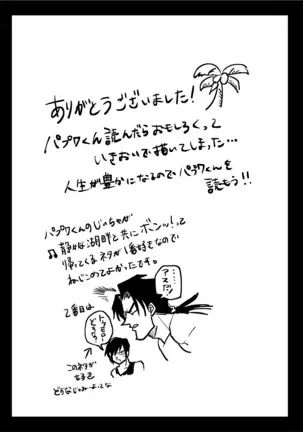 ありがとうございました!
パプワくん読んだらおもしろくって
いきおいで描いてしまった…
人生が豊かになるのでパプワくんを
読もう!!
パプワくんのじっちゃが
♫静かな湖畔と共にボンッ!って
帰ってくるネタが1番好きなので
ねじこめてよかったです。
2番目は
このネタが
好き